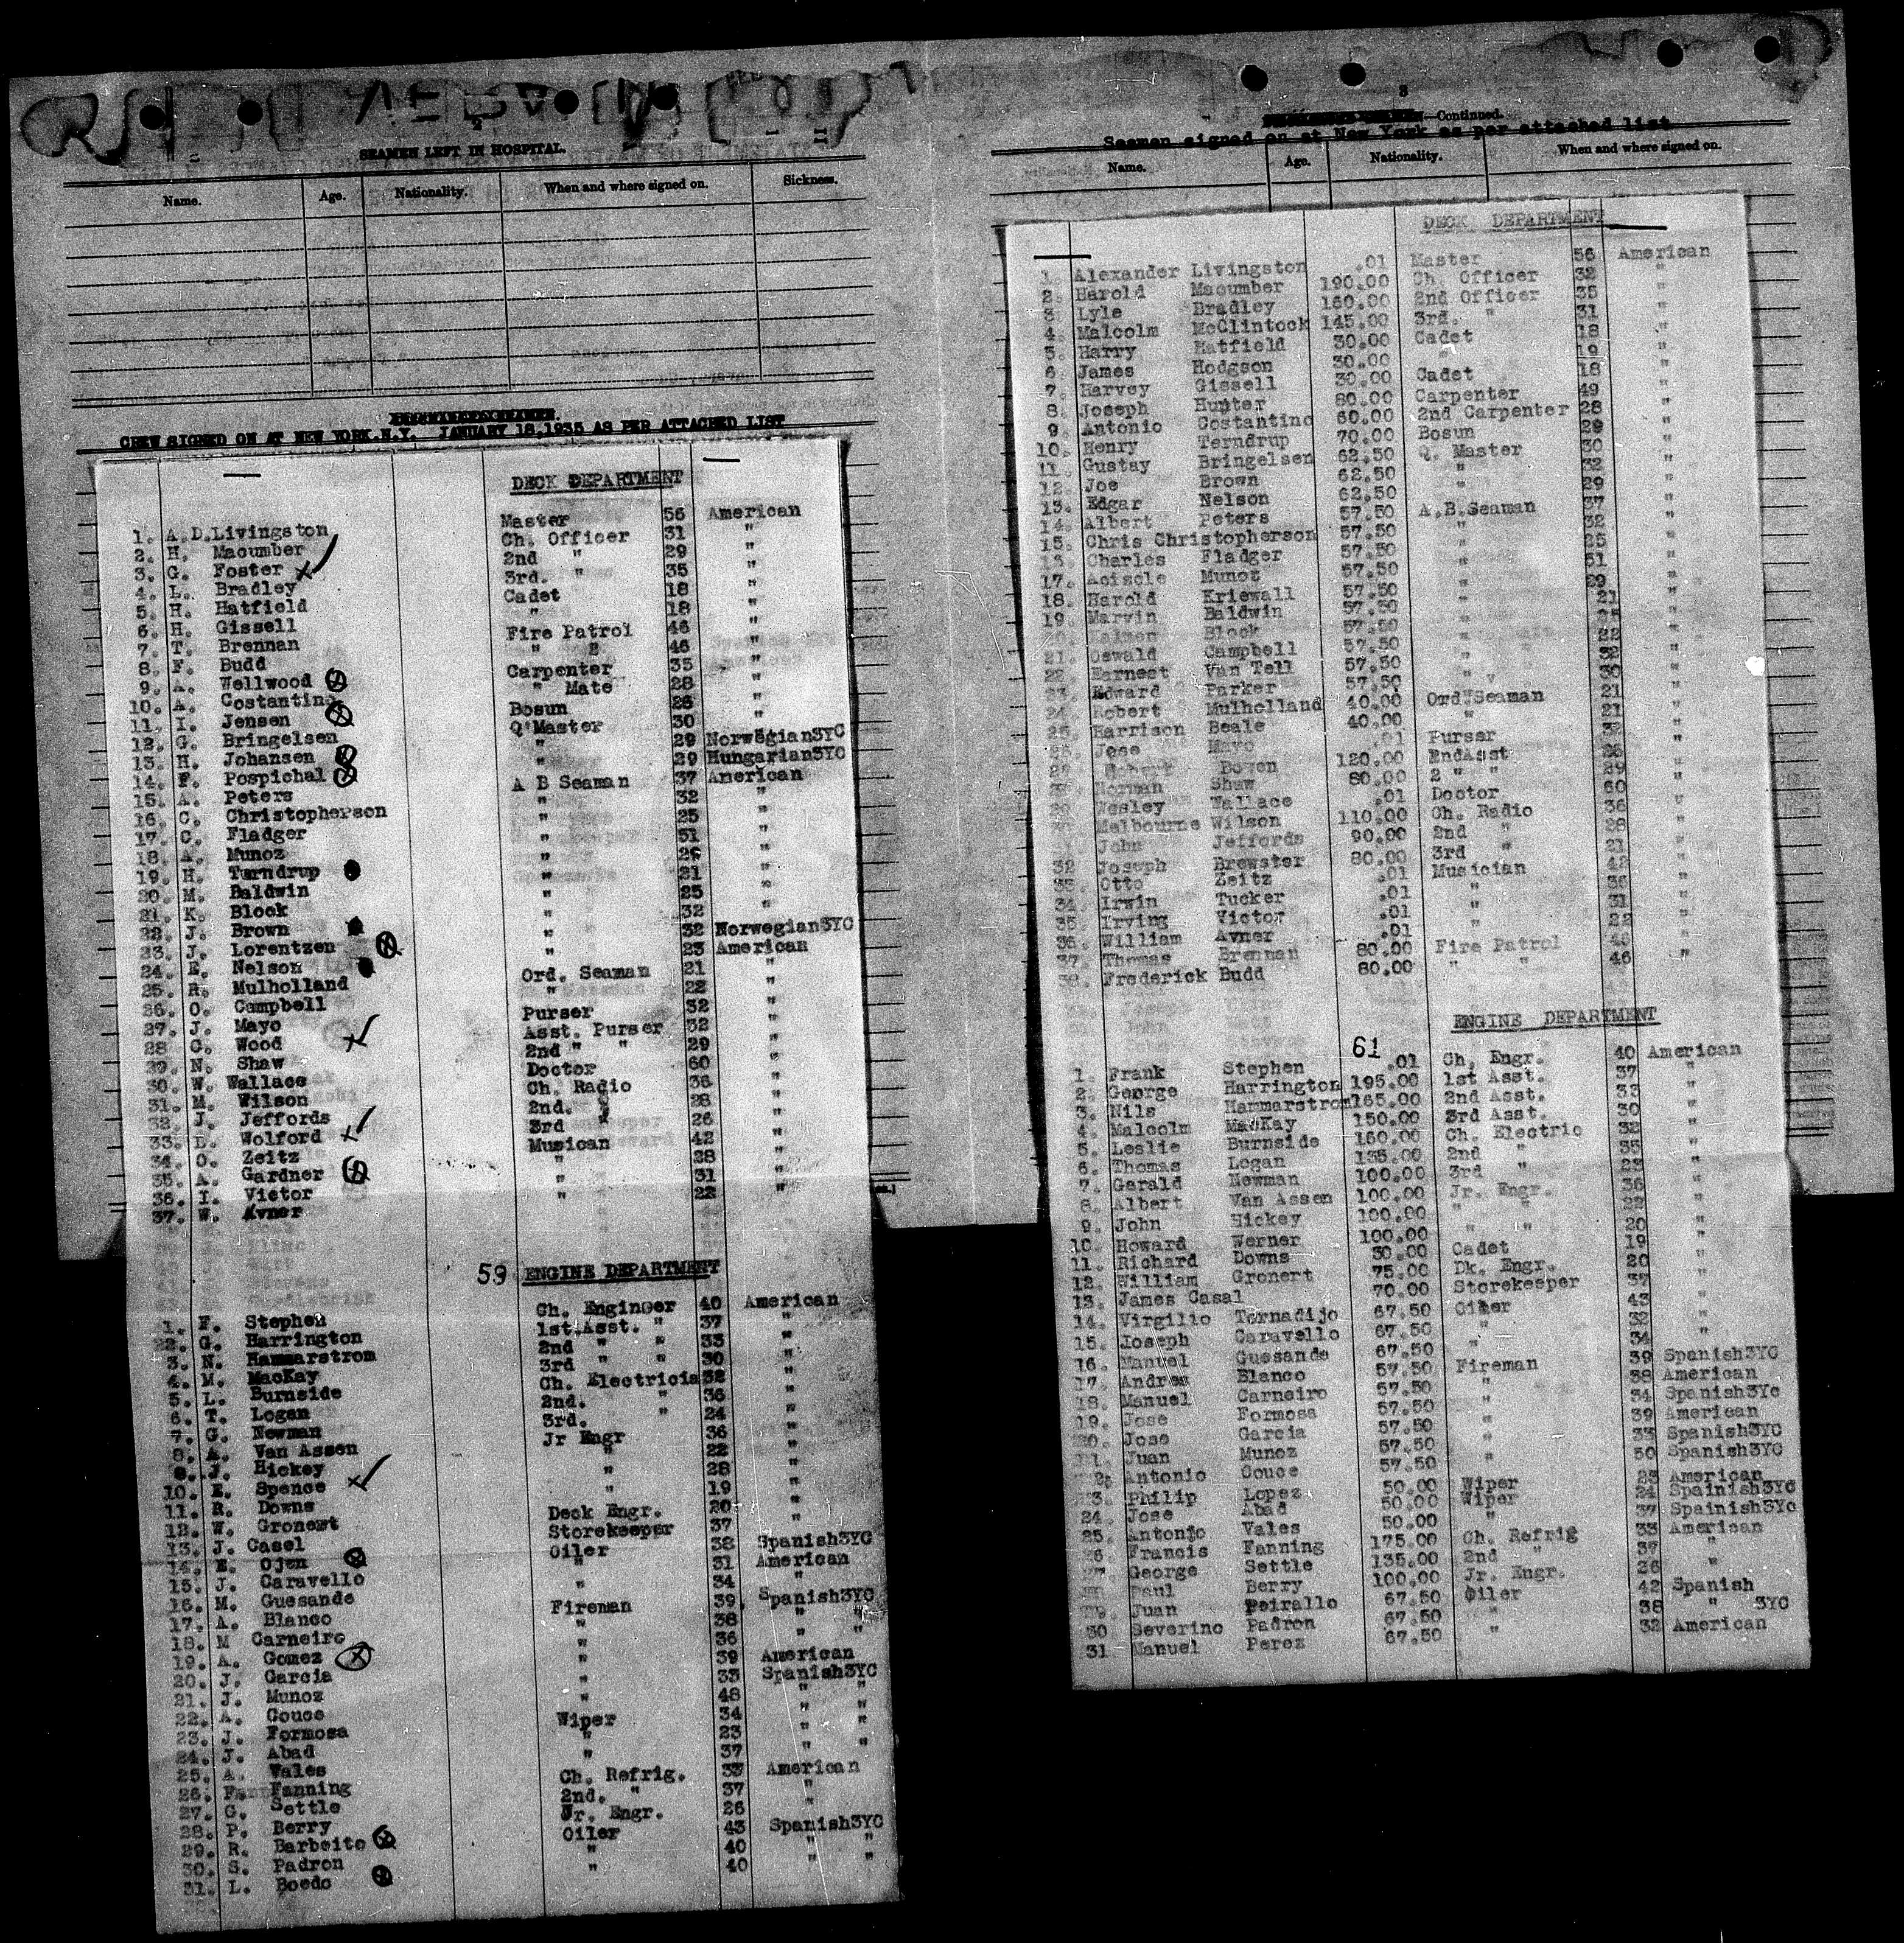 2
SEAMEN LEFT IN HOSPITAL.
Name. Age. Nationality. When and where signed on. Sickness.
CREW SIGNED ON AT NEW YORK.N.Y. JANUARY 18,1935 AS PER ATTACHED LIST
DECK DEPARTMENT
1. A.D.Livingston Master 56 American
2. H. Macumber Ch. Officer 31 "
3. G. Foster 2nd " 29 "
4. L. Bradley 3rd. " 35 "
5. H. Hatfield Cadet 18 "
6. H. Gissell " 18 "
7. T. Brennan Fire Patrol 46 "
8. F. Budd " " 46 "
9. A. Wellwood Carpenter 35 "
10. A. Costantino " Mate 28 "
11. I. Jensen Bosun 28 "
12. G. Bringelsen Q'Master 30 "
13. H. Johansen " 29 Norwegian3YC
14. F. Pospichal " 29 Hungarian3YC
15. A. Peters A B Seaman 37 American
16. C. Christopherson " 32 "
17. C. Fladger " 25 "
18. A. Munoz " 51 "
19. H. Terndrup " 29 "
20. M. Baldwin " 21 "
21. K. Block " 25 "
22. J. Brown " 32 "
23. J. Lorentzen " 32 Norwegian3YC
24. E. Nelson " 23 American
25. R. Mulholland Ord. Seaman 21 "
26. O. Campbell " 22 "
27. J. Mayo Purser 32 "
28 C. Wood Asst. Purser 32 "
29. N. Shaw 2nd " " 29 "
30. W. Wallace Doctor 60 "
31. M. Wilson Ch. Radio 36 "
32. J. Jeffords 2nd. " 28 "
33. E. Wolford 3rd " 26 "
34. O. Zeitz Musican 42 "
35. A. Gardner " 28 "
36. I. Victor " 31 "
37. W. Avner " 22 "
59 ENGINE DEPARTMENT
1. F. Stephen Ch. Engineer 40 American
22. G. Harrington 1st.Asst. " 37 "
3. N. Hammarstrom 2nd " " 33 "
4. M. MacKay 3rd " " 30 "
5. L. Burnside Ch. Electricia 32 "
6. T. Logan 2nd. " 36 "
7. G. Newman 3rd. " 24 "
8. A. Van Assen Jr Engr 36 "
9. J. Hickey " 22 "
10. E. Spence " 28 "
11. R. Downs " 19 "
12. W. Gronert Deck Engr. 20 "
13. J. Casel Storekeeper 37 "
14. E. Ojen Oiler 38 Spanish3YC
15. J. Caravello " 31 American
16. M. Guesande " 34 "
17. A. Blanco Fireman 39 Spanish3YC
18. M Carneiro " 38 " "
19. A. Gomez " 36 " "
20. J. Garcia " 39 American
21. J. Munoz " 33 Spanish3YC
22. A. Couce " 48 " "
23. J. Formosa Wiper 34 " "
24. J. Abad " 23 " "
25. A. Vales " 37 " "
26. Fanning Ch. Refrig. 33 American
27. G. Settle 2nd. " 37 "
28. P. Berry Jr. Engr. 26 "
29. R. Barbeito Oiler 43 Spanish3YC
30. S. Padron " 40 " "
31. L. Boedo " 40 " "
3
Continued.
Seamen signed on at New York as per attached list
Name. Age. Nationality. When and where signed on.
DECK DEPARTMENT
1. Alexander Livingston .01 Master 56 American
2. Harold Macumber 190.00 Ch. Officer 32 "
3. Lyle Bradley 160.00 2nd Officer 35 "
4. Malcolm McClintock 145.00 3rd. " 31 "
5. Harry Hatfield 30.00 Cadet 18 "
6. James Hodgson 30.00 " 19 "
7. Harvey Gissell 30.00 Cadet 18 "
8. Joseph Hunter 80.00 Carpenter 49 "
9. Antonio Costantino 60.00 2nd Carpenter 28 "
10. Henry Terndrup 70.00 Bosun 29 "
11. Gustav Bringelsen 62.50 Q. Master 30 "
12. Joe Brown 62.50 " 32 "
13. Edgar Nelson 62.50 " 29 "
14. Albert Peters 57.50 A.B.Seaman 37 "
15. Chris Christopherson 57.50 " 32 "
16. Charles Fladger 57.50 " 25 "
17. Aciscle Munoz 57.50 " 51 "
18. Harold Kriewall 57.50 " 29 "
19. Marvin Baldwin 57.50 " 21 "
20. Block 57.50 " 25 "
21. Oswald Campbell 57.50 " 22 "
22. Earnest Van Tell 57.50 " 32 "
23. Edward Parker 57.50 " 30 "
24. Robert Mulholland 40.00 Ord.Seaman 21 "
25. Harrison Beale 40.00 " 21 "
26. Jose Mayo .01 Purser 32 "
Bowen 120.00 EndAsst 26 "
Norman Shaw 80.00 2 " " 29 "
Wesley Wallace .01 Doctor 60 "
Melbourne Wilson 110.00 Ch. Radio 36 "
John Jeffords 90.00 2nd " 28 "
32 Joseph Brewster 80.00 3rd " 21 "
33. Otto Zeitz .01 Musician 42 "
34. Irwin Tucker .01 " 36 "
35. Irving Victor .01 " 31 "
36. William Avner .01 " 22 "
37. Thomas Brennan 80.00 Fire Patrol 46 "
38. Frederick Budd 80.00 " " 46 "
ENGINE DEPARTMENT
61
1. Frank Stephen .01 Ch. Engr. 40 American
2. George Harrington 195.00 1st Asst. 37 "
3. Nils Hammarstrom 165.00 2nd Asst. 33 "
4. Malcolm MacKay 150.00 3rd Asst. 30 "
5. Leslie Burnside 150.00 Ch. Electric 32 "
6. Thomas Logan 135.00 2nd " 35 "
7. Gerald Newman 100.00 3rd " 23 "
8. Albert Van Assen 100.00 Jr. Engr. 36 "
9. John Hickey 100.00 " " 22 "
10. Howard Werner 100.00 " " 20 "
11. Richard Downs 30.00 Cadet 19 "
12. William Gronert 75.00 Dk. Engr. 20 "
13. James Casal 70.00 Storekeeper 37 "
14. Virgilio Tornadijo 67.50 Oiler 43 "
15. Joseph Caravello 67.50 " 32 "
16. Manuel Guesande 67.50 " 34 "
17. Andres Blanco 57.50 Fireman 39 Spanish3YC
18. Manuel Carneiro 57.50 " 38 American
19. Jose Formosa 57.50 " 34 Spanish3Yc
20. Jose Garcia 57.50 " 39 American
21. Juan Munoz 57.50 " 33 Spanish3YC
22. Antonio Couce 57.50 " 50 Spanish3YC
23. Philip Lopez 50.00 Wiper 23 American
24. Jose Abad 50.00 Wiper 24 Spainish3YC
25. Antonio Vales 50.00 " 37 Spainish3Yc
26. Francis Fanning 175.00 Ch. Refrig 33 American
27. George Settle 135.00 2nd " 37 "
Paul Berry 100.00 Jr. Engr. 26 "
29. Juan Peirallo 67.50 Oiler 42 Spanish
30 Severino Padron 67.50 " 38 " 3YC
31 Manuel Perez 67.50 " 32 American